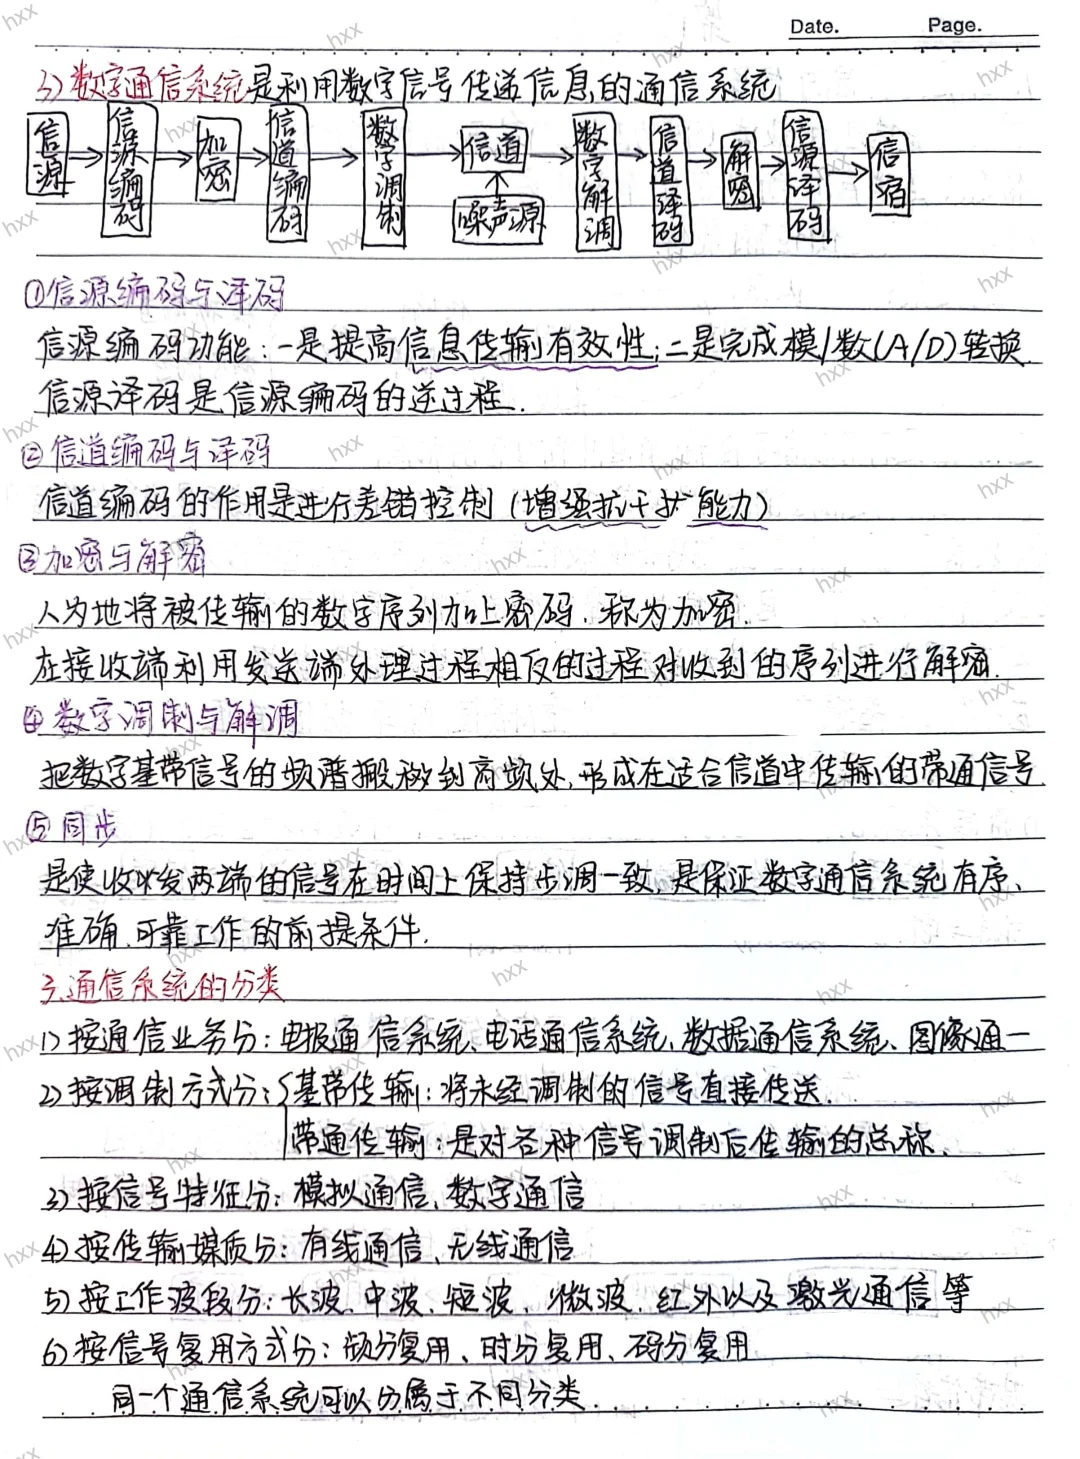 Date. Page.
3)数字通信系统是利用数字信号传送信息的通信系统
信源 信源编码 加密 信道编码 数字调制 信道 数字解调 信道译码 解密 信源译码 信宿
噪声源
①信源编码与译码
信源编码功能:一是提高信息传输有效性;二是完成模/数(A/D)转换.
信源译码是信源编码的逆过程.
②信道编码与译码
信道编码的作用是进行差错控制(增强抗干扰能力)
③加密与解密
人为地将被传输的数字序列加上密码,称为加密.
在接收端利用发送端处理过程相反的过程对收到的序列进行解密.
④数字调制与解调
把数字基带信号的频谱搬移到高频处,形成在适合信道中传输的带通信号.
⑤同步
是使收发两端的信号在时间上保持步调一致,是保证数字通信系统有序、
准确、可靠工作的前提条件.
3.通信系统的分类
1)按通信业务分:电报通信系统、电话通信系统、数据通信系统、图像通一
2)按调制方式分:{基带传输:将未经调制的信号直接传送.
带通传输:是对各种信号调制后传输的总称.
3)按信号特征分:模拟通信、数字通信
4)按传输媒质分:有线通信、无线通信
5)按工作波段分:长波、中波、短波、微波、红外以及激光通信等
6)按信号复用方式分:频分复用、时分复用、码分复用
同一个通信系统可以分属于不同分类.
hxx